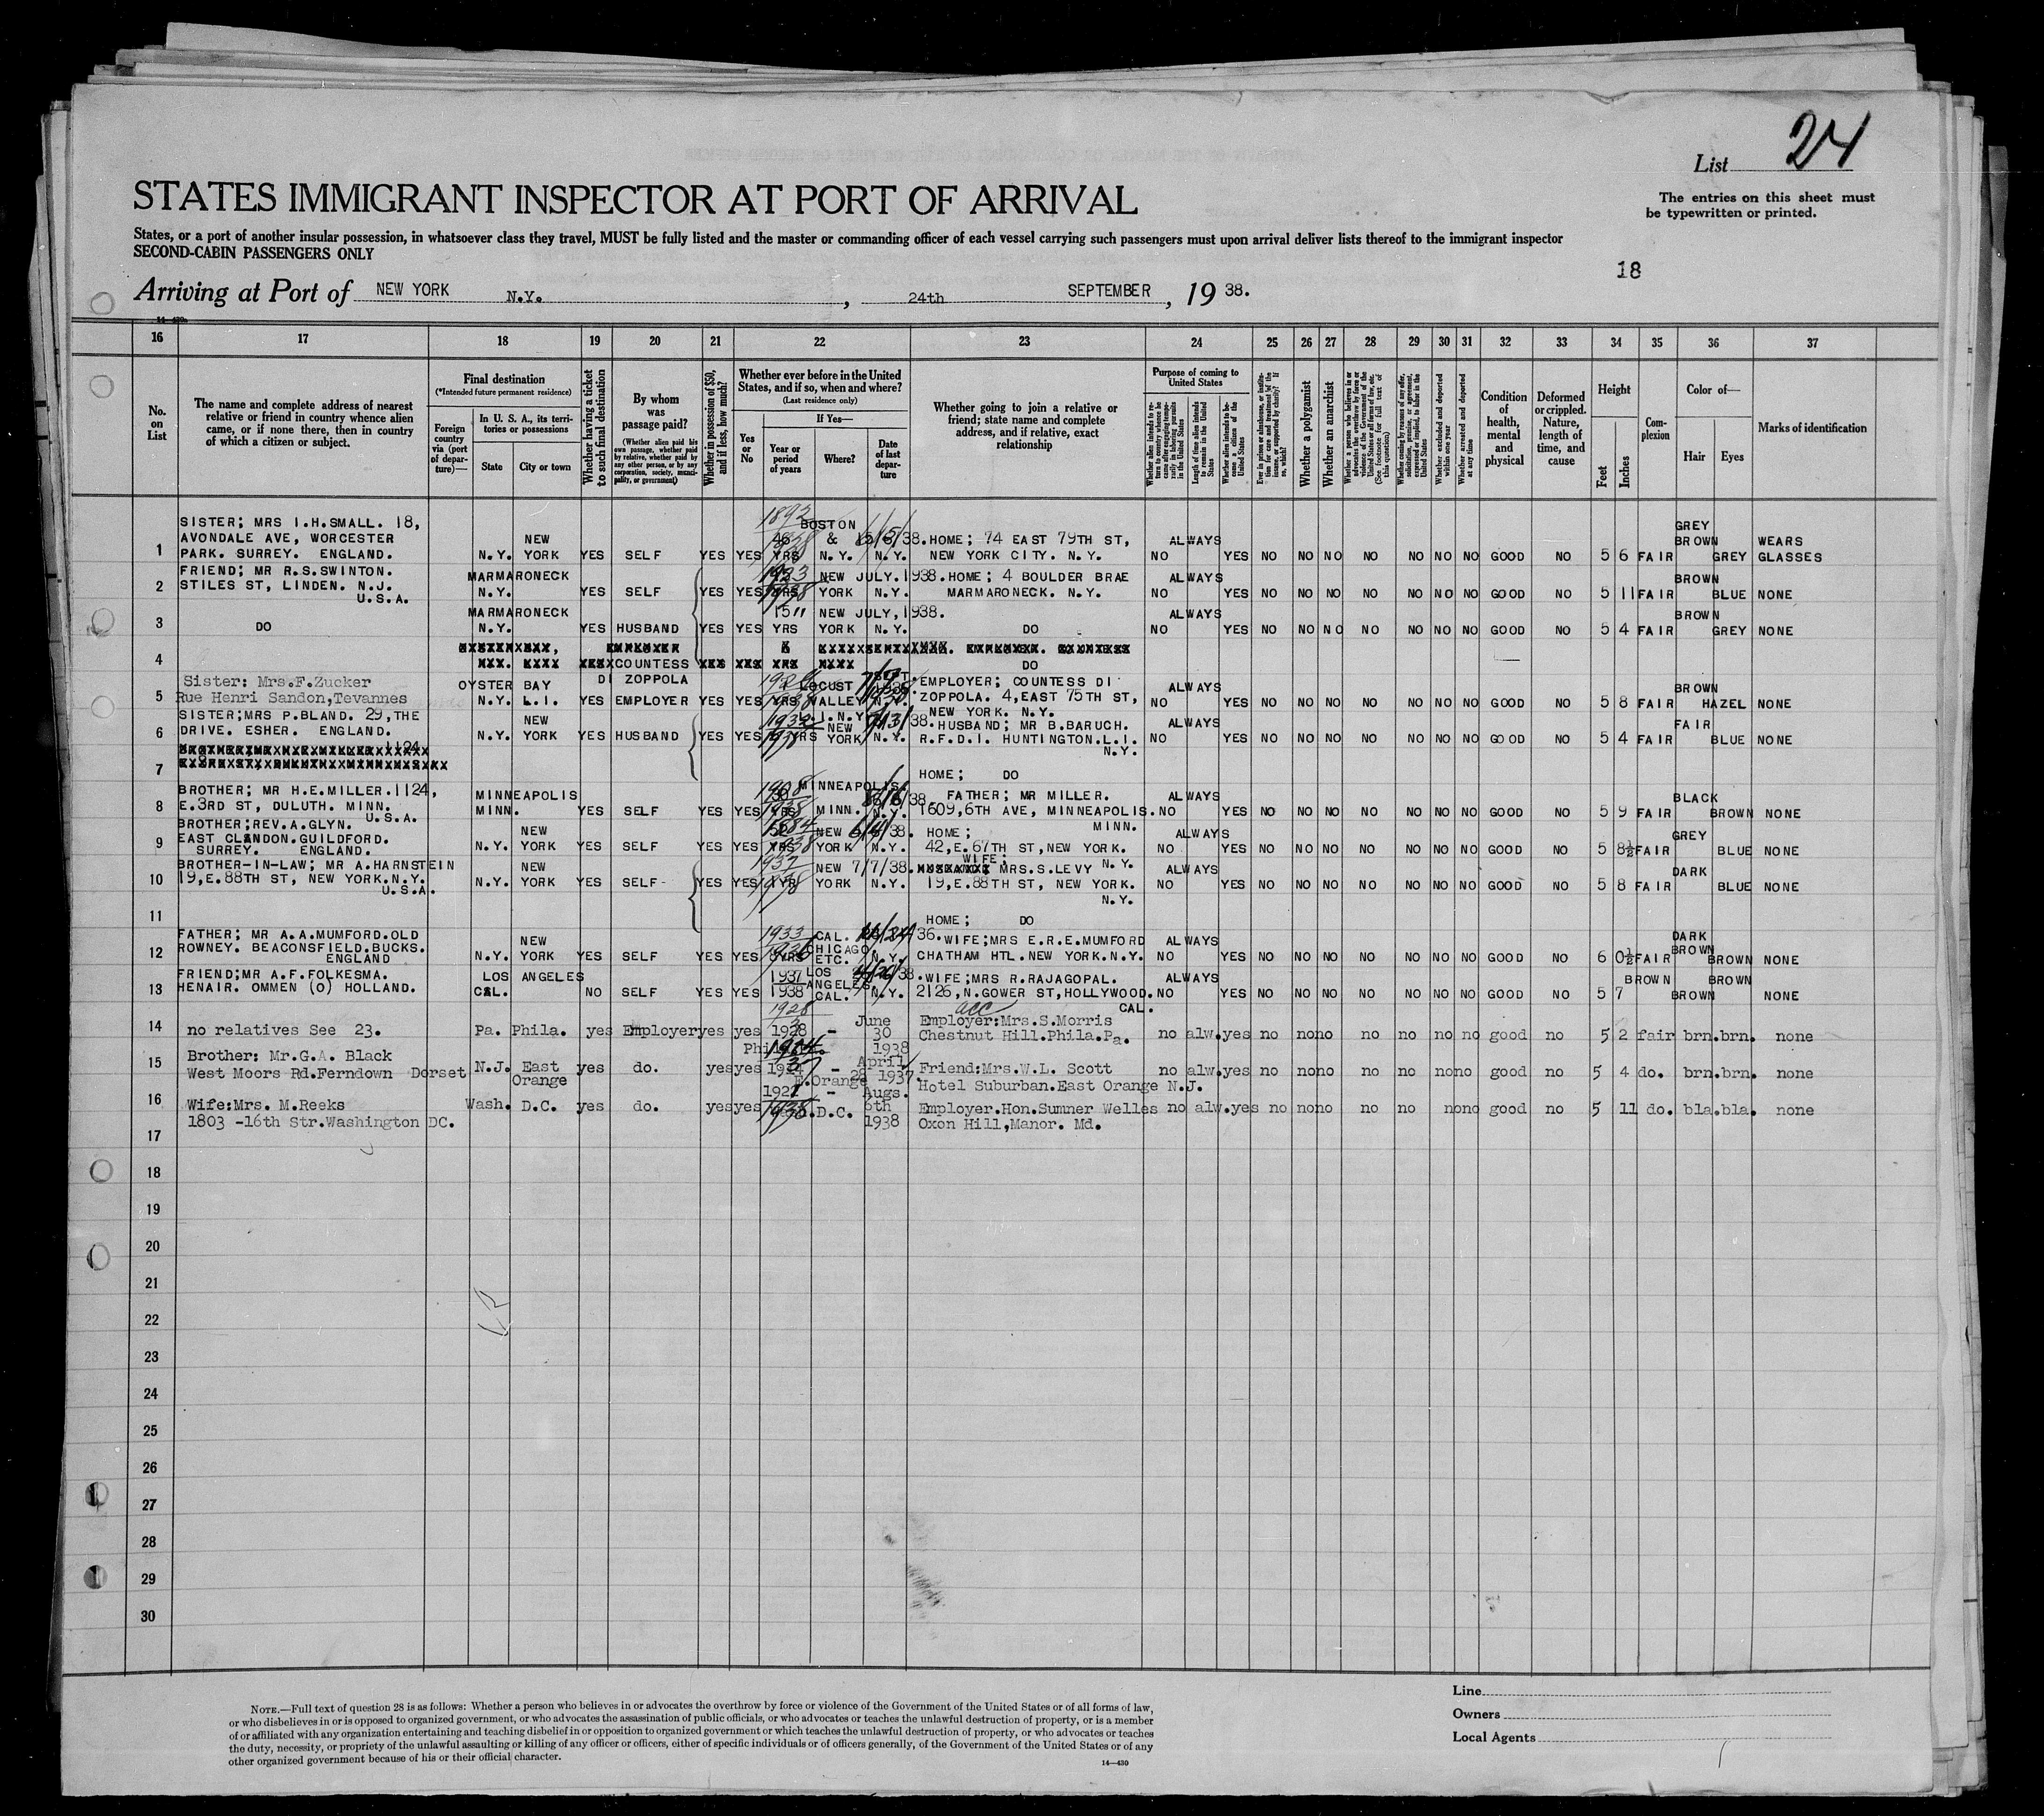 List 24
STATES IMMIGRANT INSPECTOR AT PORT OF ARRIVAL
The entries on this sheet must
be typewritten or printed.
States, or a port of another insular possession, in whatsoever class they travel, MUST be fully listed and the master or commanding officer of each vessel carrying such passengers must upon arrival deliver lists thereof to the immigrant inspector
SECOND-CABIN PASSENGERS ONLY
18
Arriving at Port of NEW YORK N.Y., 24th SEPTEMBER, 19 38.
16 17 18 19 20 21 22 23 24 25 26 27 28 29 30 31 32 33 34 35 36 37
No. on List
The name and complete address of nearest relative or friend in country whence alien came, or if none there, then in country of which a citizen or subject.
Final destination
(*Intended future permanent residence)
Foreign country via (port of departure)—
In U. S. A., its territories or possessions
State City or town
Whether having a ticket to such final destination
By whom was passage paid?
(Whether alien paid his own passage, whether paid by relative, whether paid by any other person, or by any corporation, society, municipality, or government)
Whether in possession of $50, and if less, how much?
Whether ever before in the United States, and if so, when and where?
(Last residence only)
Yes or No
If Yes—
Year or period of years
Where?
Date of last departure
Whether going to join a relative or friend; state name and complete address, and if relative, exact relationship
Purpose of coming to United States
Length of time alien intends to remain in the United States
Whether a polygamist
Whether an anarchist
Whether excluded and deported within one year
Whether arrested and deported at any time
Condition of health, mental and physical
Deformed or crippled. Nature, length of time, and cause
Height
Feet Inches
Complexion
Color of—
Hair Eyes
Marks of identification
1892
SISTER; MRS I.H.SMALL. 18, BOSTON GREY
AVONDALE AVE, WORCESTER NEW & HOME; 74 EAST 79TH ST, ALWAYS BROWN WEARS
1 PARK. SURREY. ENGLAND. N.Y. YORK YES SELF YES YES YRS N.Y. N.Y. NEW YORK CITY. N.Y. NO YES NO NO NO NO NO NO NO GOOD NO 5 6 FAIR GREY GLASSES
FRIEND; MR R.S.SWINTON. MARMARONECK NEW JULY.1938. HOME; 4 BOULDER BRAE ALWAYS BROWN
2 STILES ST, LINDEN. N.J. N.Y. YES SELF YES YES YORK N.Y. MARMARONECK. N.Y. NO YES NO NO NO NO NO NO NO GOOD NO 5 11 FAIR BLUE NONE
U.S.A.
MARMARONECK 15 NEW JULY,1938. ALWAYS BROWN
3 DO N.Y. YES HUSBAND YES YES YRS YORK N.Y. DO NO YES NO NO NO NO NO NO NO GOOD NO 5 4 FAIR GREY NONE
4 COUNTESS DO
Sister: Mrs.F.Zucker OYSTER BAY DI ZOPPOLA LOCUST EMPLOYER; COUNTESS DI ALWAYS BROWN
5 Rue Henri Sandon,Tevannes N.Y. L.I. YES EMPLOYER YES YES YRS VALLEY N.Y. ZOPPOLA. 4,EAST 75TH ST, NO YES NO NO NO NO NO NO NO GOOD NO 5 8 FAIR HAZEL NONE
L.I.N.Y. NEW YORK. N.Y.
SISTER;MRS P.BLAND. 29,THE NEW 1932 NEW HUSBAND; MR B.BARUCH. ALWAYS FAIR
6 DRIVE. ESHER. ENGLAND. N.Y. YORK YES HUSBAND YES YES YRS YORK N.Y. R.F.D.I. HUNTINGTON.L.I. NO YES NO NO NO NO NO NO NO GOOD NO 5 4 FAIR BLUE NONE
N.Y.
7 HOME; DO
BROTHER; MR H.E.MILLER.1124, MINNEAPOLIS 1908 MINNEAPOLIS FATHER; MR MILLER. ALWAYS BLACK
8 E.3RD ST, DULUTH. MINN. MINN. YES SELF YES YES MINN. N.Y. 1609,6TH AVE, MINNEAPOLIS. NO YES NO NO NO NO NO NO NO GOOD NO 5 9 FAIR BROWN NONE
U.S.A. MINN.
BROTHER;REV.A.GLYN. 1884
EAST CLANDON.GUILDFORD. NEW NEW HOME; ALWAYS GREY
9 SURREY. ENGLAND. N.Y. YORK YES SELF YES YES YORK N.Y. 42,E.67TH ST,NEW YORK. NO YES NO NO NO NO NO NO NO GOOD NO 5 8½ FAIR BLUE NONE
N.Y.
BROTHER-IN-LAW; MR A.HARNSTEIN NEW 1937 NEW 7/7/38. WIFE; MRS.S.LEVY ALWAYS DARK
10 19,E.88TH ST, NEW YORK.N.Y. N.Y. YORK YES SELF YES YES YORK N.Y. 19,E.88TH ST, NEW YORK. NO YES NO NO NO NO NO NO NO GOOD NO 5 8 FAIR BLUE NONE
U.S.A. N.Y.
11 HOME; DO
FATHER; MR A.A.MUMFORD.OLD 1933 CAL. 36. WIFE;MRS E.R.E.MUMFORD ALWAYS DARK
ROWNEY. BEACONSFIELD.BUCKS. NEW CHICAGO BROWN
12 ENGLAND N.Y. YORK YES SELF YES YES 1936 ETC. N.Y. CHATHAM HTL.NEW YORK.N.Y. NO YES NO NO NO NO NO NO NO GOOD NO 6 0½ FAIR BROWN NONE
FRIEND;MR A.F.FOLKESMA. LOS ANGELES 1937 LOS ANGELES WIFE;MRS R.RAJAGOPAL. ALWAYS BROWN BROWN
13 HENAIR. OMMEN (O) HOLLAND. CAL. NO SELF YES YES 1938 CAL. N.Y. 2126,N.GOWER ST,HOLLYWOOD. NO YES NO NO NO NO NO NO NO GOOD NO 5 7 BROWN NONE
CAL.
1928 June Employer:Mrs.S.Morris
14 no relatives See 23. Pa. Phila. yes Employer yes yes 1938 - 30 1938 Chestnut Hill.Phila.Pa. no alw. yes no no no no no no no good no 5 2 fair brn. brn. none
Brother: Mr.G.A. Black April
15 West Moors Rd.Ferndown Dorset N.J. East Orange yes do. yes yes - 1937. Friend:Mrs.W.L. Scott no alw. yes no no no no no no no good no 5 4 do. brn. brn. none
Orange Hotel Suburban.East Orange N.J.
Augs.
16 Wife:Mrs. M.Reeks Wash. D.C. yes do. yes yes 1938 D.C. 6th Employer.Hon.Sumner Welles no alw. yes no no no no no no no good no 5 11 do. bla. bla. none
17 1803 -16th Str.Washington DC. 1938 Oxon Hill,Manor. Md.
18
19
20
21
22
23
24
25
26
27
28
29
30
NOTE.—Full text of question 28 is as follows: Whether a person who believes in or advocates the overthrow by force or violence of the Government of the United States or of all forms of law,
or who disbelieves in or is opposed to organized government, or who advocates the assassination of public officials, or who advocates or teaches the unlawful destruction of property, or is a member
of or affiliated with any organization entertaining and teaching disbelief in or opposition to organized government or which teaches the unlawful destruction of property, or who advocates or teaches
the duty, necessity, or propriety of the unlawful assaulting or killing of any officer or officers, either of specific individuals or of officers generally, of the Government of the United States or of any
other organized government because of his or their official character.
14—430
Line
Owners
Local Agents